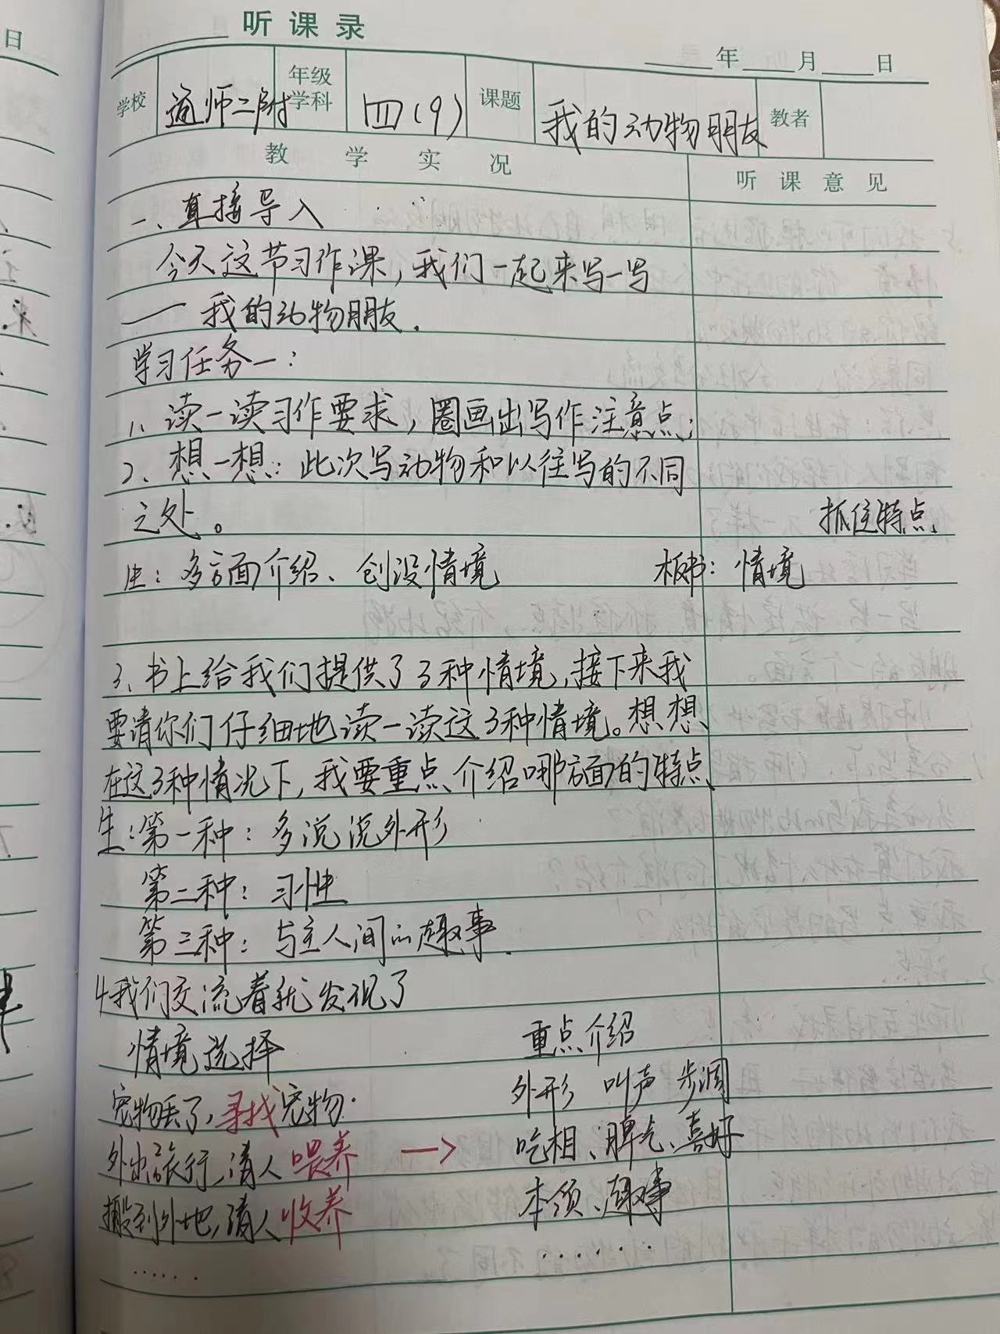 听课录
年 月 日
学校 通师二附 年级学科 四(9) 课题 我的动物朋友 教者
教学实况 听课意见
一、直接导入
今天这节习作课,我们一起来写一写
——我的动物朋友.
学习任务一:
1、读一读习作要求,圈画出写作注意点;
2、想一想:此次写动物和以往写的不同
之处。 抓住特点
生:多方面介绍、创设情境 板书:情境
3、书上给我们提供了3种情境,接下来我
要请你们仔细地读一读这3种情境。想想
在这3种情况下,我要重点介绍哪方面的特点
生:第一种:多说说外形
第二种:习性
第三种:与主人间的趣事.
4我们交流着就发现了
情境选择 重点介绍
宠物丢了,寻找宠物. 外形 叫声 步调
外出旅行,请人喂养 → 吃相、脾气、喜好
搬到外地,请人收养 本领、趣事
…… ……